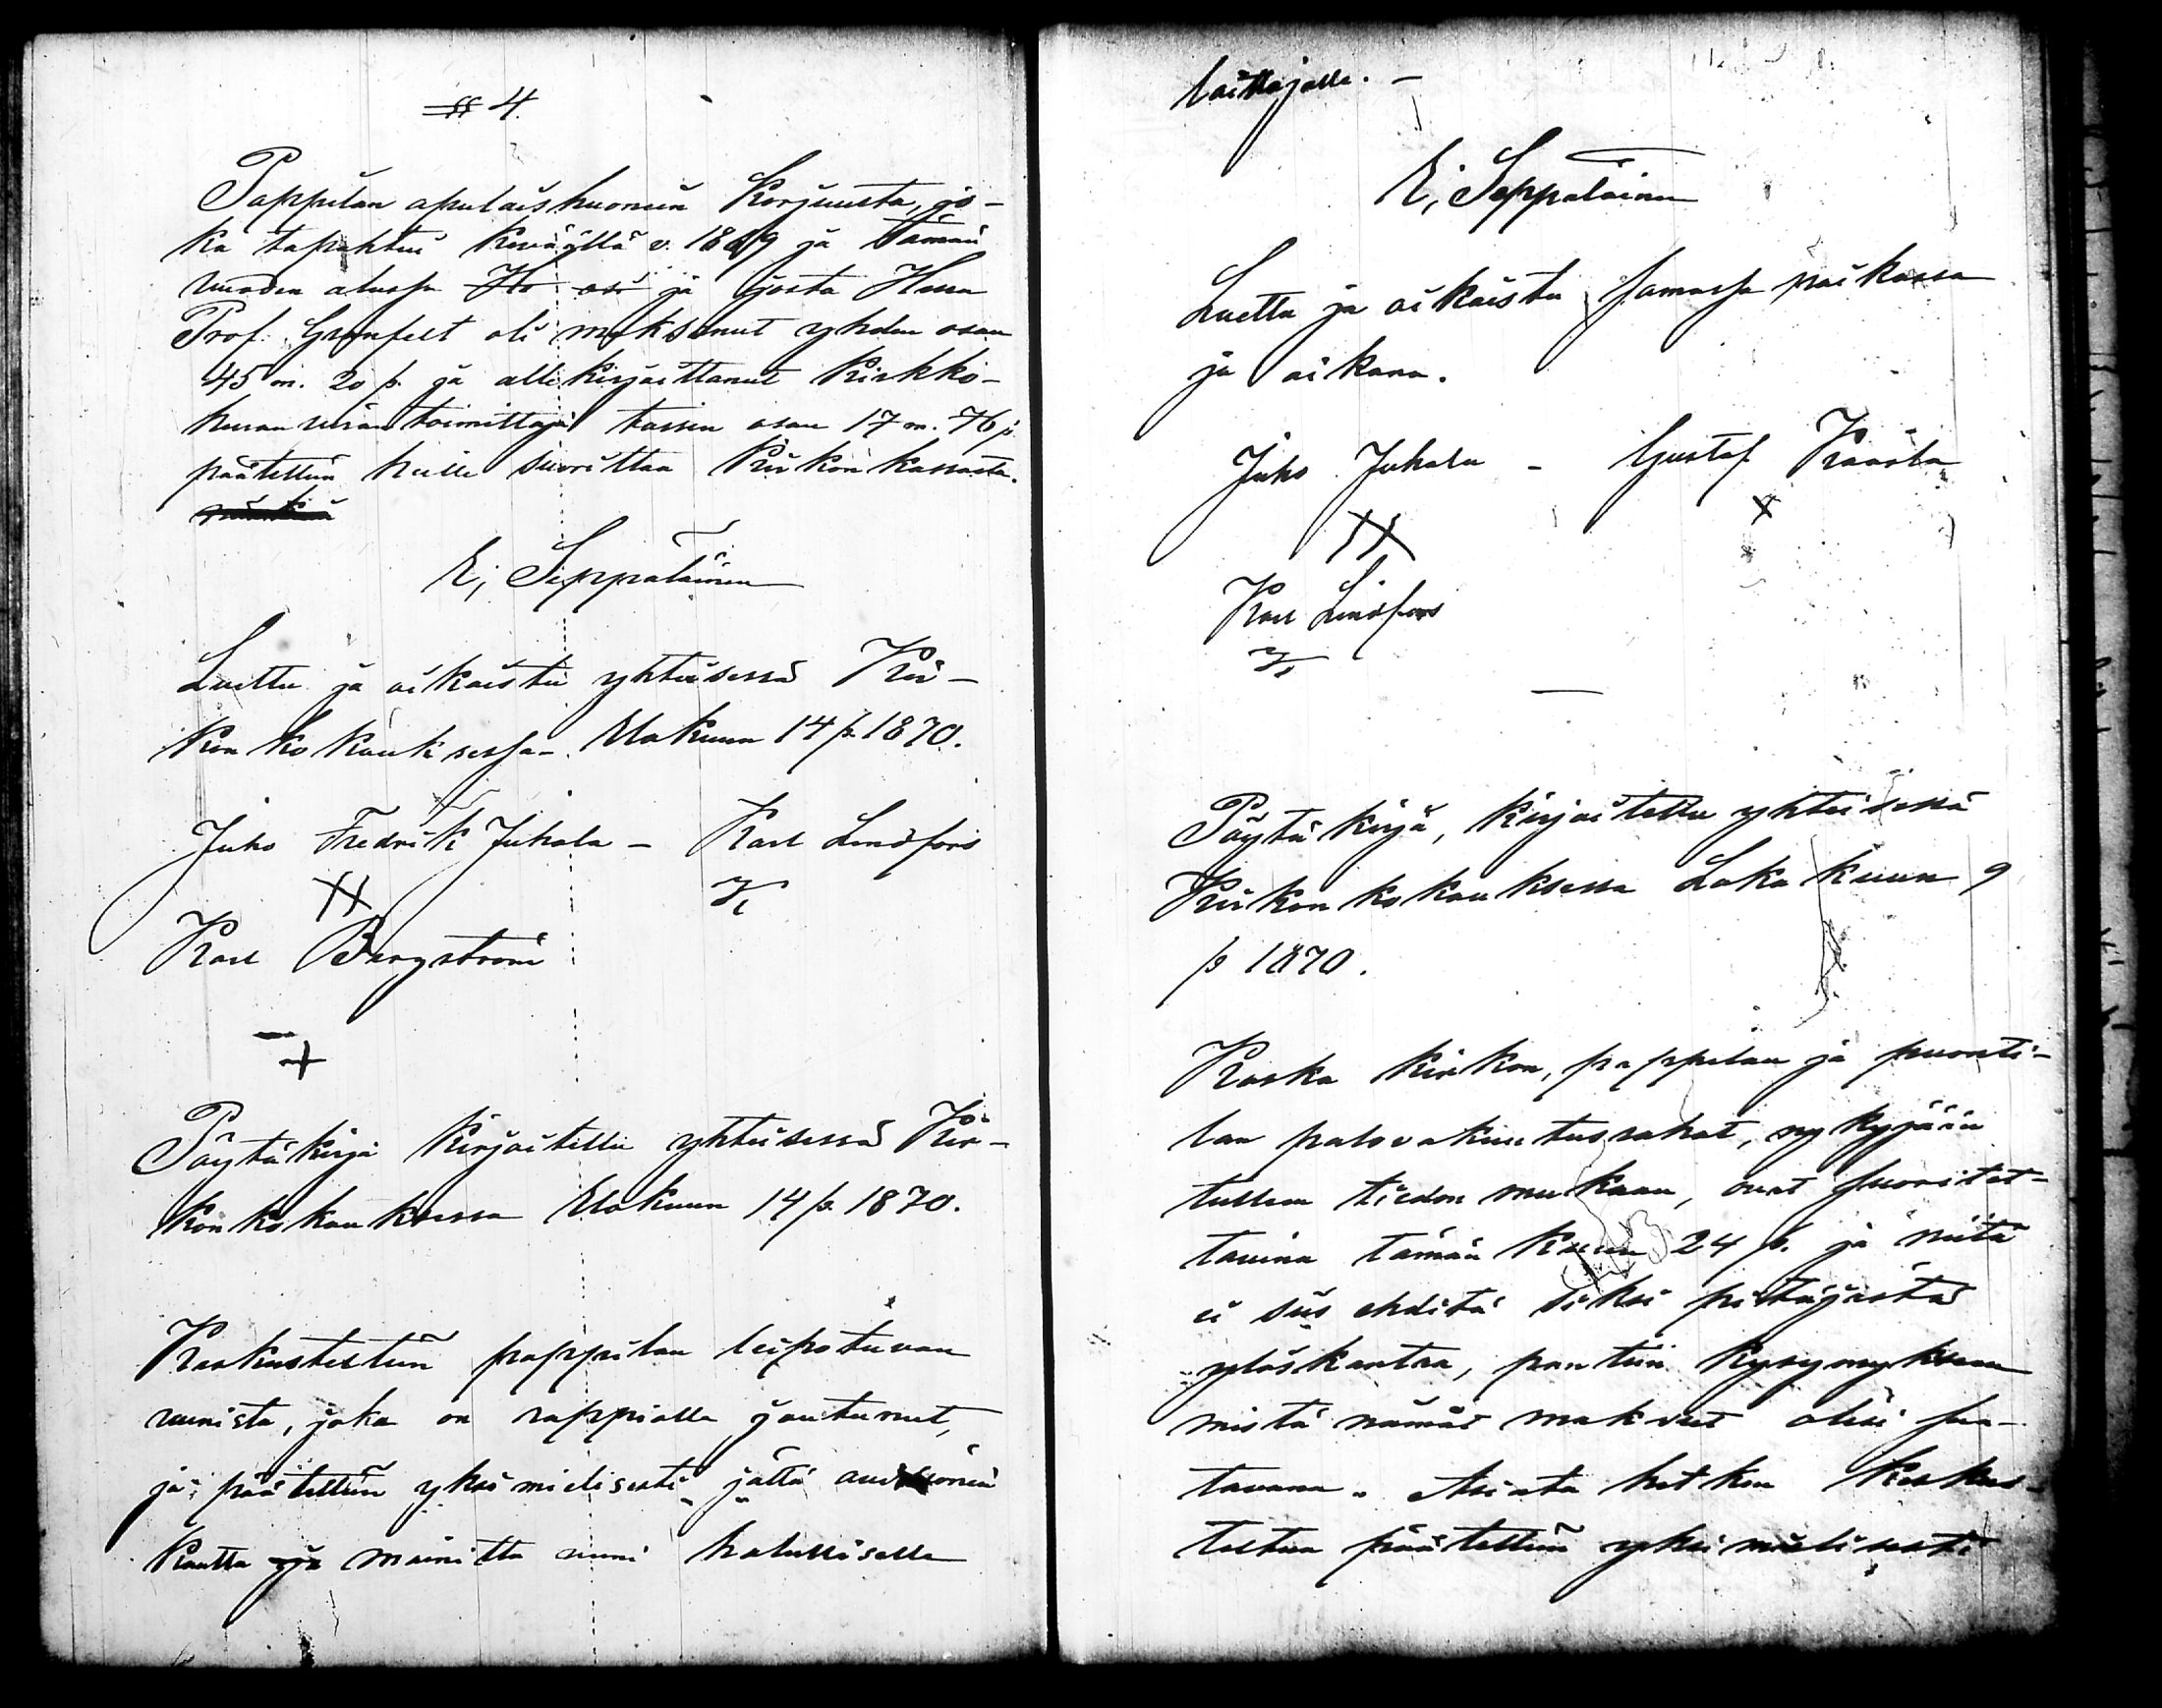 § 4
Pappilan apulaishuoneen Korjuusta, jo-
ka tapahtui keväällä v. 1869 ja tämän
vuoden alussa ja josta Herra
Prof. Granfelt oli maksanut yhden osan
45 m. 20 p. ja allekirjoittanut Kirkko-
herran viran toimittaja toisen osan 17 m. 76 p
päätettiin heille suorittaa Kirkon kassasta.
E; Seppalainen
Luettu ja oikaistu yhteisessä Kir-
kon kokouksessa Elokuun 14 p. 1870.
Juho Fredrik Juhala – Karl Lindfors
Karl Bergström
Pöytäkirja Kirjoitettu yhteisessä Kir-
kon kokouksessa Elokuun 14 p. 1870.
Keskusteltiin pappilan leipotuvan
uunista, joka on rappiolle joutunut,
ja päätettiin yksimielisesti jättä
kautta mainittu uuni halulliselle
laittajalle. –
E; Seppalainen
Luettu ja oikaistu samassa paikassa
ja aikana.
Juho Juhala – Gustaf Kaarla
Karl Lindfors
Pöytäkirja, Kirjoitettu yhteisessä
Kirkon kokouksessa Lokakuun 9
p 1870.
Koska kirkon, pappilan ja puusti-
lan palovakuutusrahat, nykyjään
tulleen tiedon mukaan, ovat suoritet-
tavina tämän kuun 24 p. ja niitä
ei siis ehditä siksi pitäjästä
ylöskantaa, pantiin kysymykseen
mistä nämät maksut olisi saa-
tavana. Asiata hetken keskus-
teltua päätettiin yksimielisesti